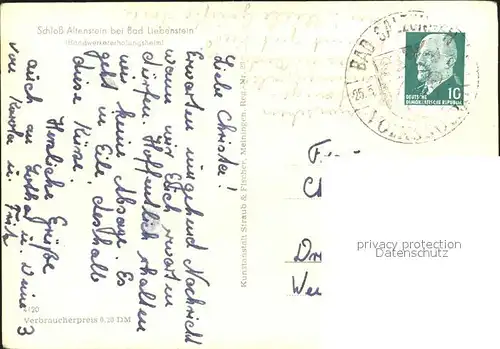 Schloß Altenstein bei Bad Liebenstein
(Handwerkererholungsheim)
Liebe Christa!
Erwarten umgehend Nachricht
wann wir Euch erwarten
dürfen. Hoffentlich erhalten
wir keine Absage. Es
geht in Eile, deshalb
diese Kürze.
Herzliche Grüße
auch an Lothar u. Deine 3
von Karola u. Fritz
4120
Verbraucherpreis 0,20 DM
Kunstanstalt Straub & Fischer, Meiningen, Reg.-Nr.
BAD SALZUNGEN
10
DEUTSCHE
DEMOKRATISCHE REPUBLIK
privacy protection
Datenschutz